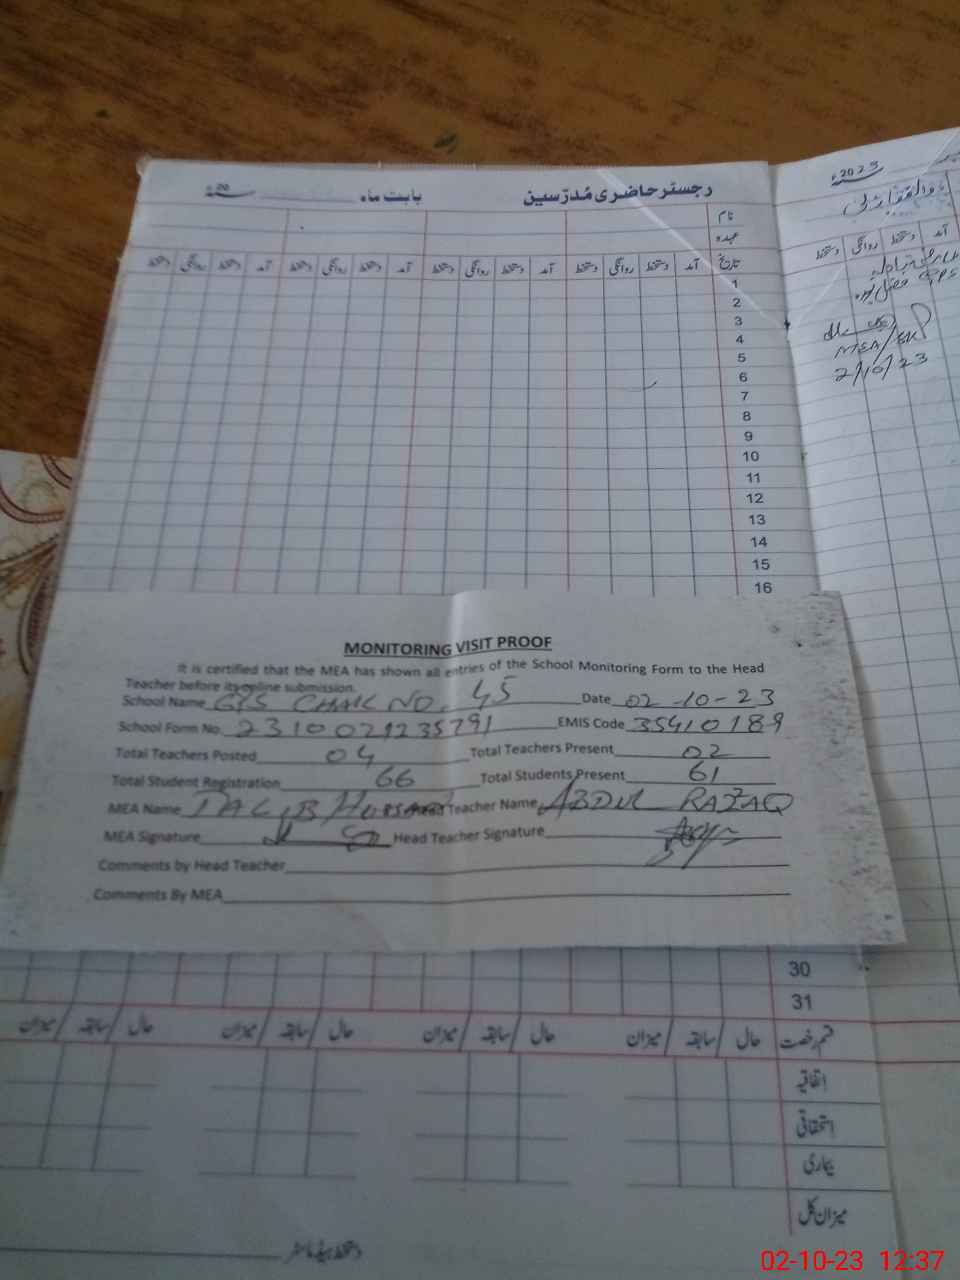 رجسٹر حاضری مُدرّسین بابت ماہ 20ء
نام
عہدہ
تاریخ آمد دستخط روانگی دستخط آمد دستخط روانگی دستخط آمد دستخط روانگی دستخط آمد دستخط روانگی دستخط
1
2
3
4
5
6
7
8
9
10
11
12
13
14
15
16
2023ء
آمد دستخط روانگی دستخط
GPS فضل پورہ
MEA/
2/10/23
MONITORING VISIT PROOF
It is certified that the MEA has shown all entries of the School Monitoring Form to the Head
Teacher before its online submission.
School Name GPS CHAK NO. 45 Date 02-10-23
School Form No. EMIS Code 35410189
Total Teachers Posted 04 Total Teachers Present 02
Total Student Registration 66 Total Students Present 61
MEA Name TALIB HUSSAIN Head Teacher Name ABDUL RAZZAQ
MEA Signature Head Teacher Signature
Comments by Head Teacher
Comments By MEA
30
31
قسم رخصت حال سابقہ میزان حال سابقہ میزان حال سابقہ میزان حال سابقہ میزان
اتفاقیہ
استحقاقی
بیماری
میزان کل
دستخط ہیڈ ماسٹر
02-10-23 12:37